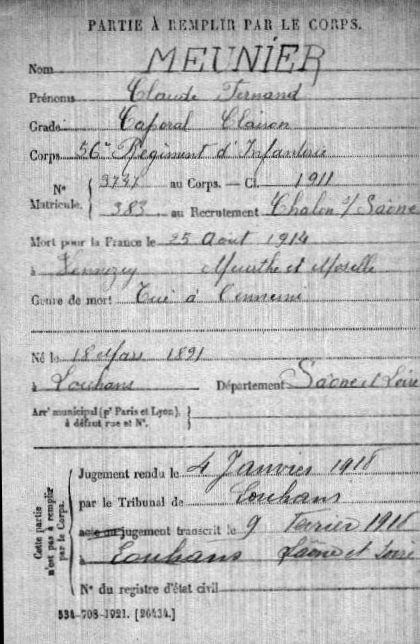 PARTIE À REMPLIR PAR LE CORPS.
Nom MEUNIER
Prénoms Claude Fernand
Grade Caporal Clairon
Corps 56e Régiment d'Infanterie
N° Matricule. { 3737 au Corps. — Cl. 1911
383 au Recrutement Chalon s/ Saône
Mort pour la France le 25 Août 1914
à Meurthe et Moselle
Genre de mort Tué à l'ennemi
Né le 18 Mars 1891
à Louhans Département Saône et Loire
Arr¹ municipal (p¹ Paris et Lyon),
à défaut rue et N°.
Cette partie n'est pas à remplir par le Corps.
Jugement rendu le 4 Janvier 1918
par le Tribunal de Louhans
acte ou jugement transcrit le 9 Février 1918
à Louhans Saône et Loire
N° du registre d'état civil
534-708-1921. [26434.]